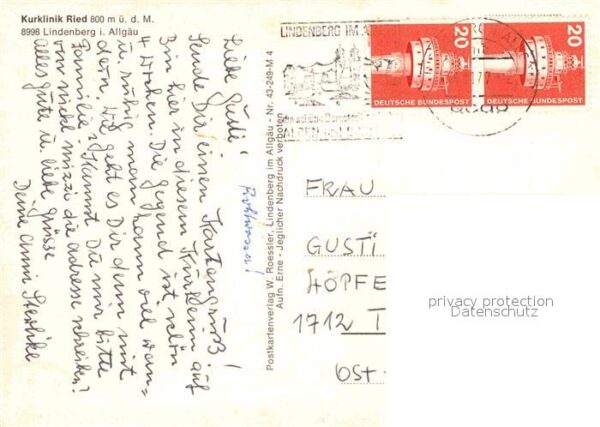 Kurklinik Ried 800 m ü. d. M.
8998 Lindenberg i. Allgäu
Liebe Gusti!
Sende Dir einen Kartengruß!
Bin hier in diesem Kurheim auf
4 Wochen. Die Gegend ist schön
u. ruhig man kann viel wan=
dern. Wie geht es Dir denn mit
Familie? Kannst Du mir bitte
von mizzi die adresse schreiben?
alles gute u. liebe Grüsse
Deine
Postkartenverlag W. Roessler, Lindenberg im Allgäu - Nr. 43-249-M 4
Aufn. Erne - Jeglicher Nachdruck verboten
LINDENBERG IM A
20
DEUTSCHE BUNDESPOST
20
DEUTSCHE BUNDESPOST
FRAU
GUSTI
HÖPFE
1712 T
OST-
privacy protection
Datenschutz